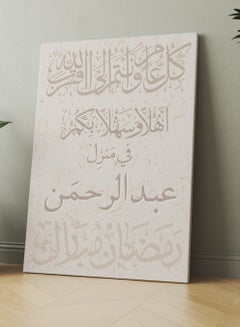 كل عام وأنتم إلى الله أقرب
أهلاً وسهلاً بكم
في منزل
عبدالرحمن
رمضان مبارك